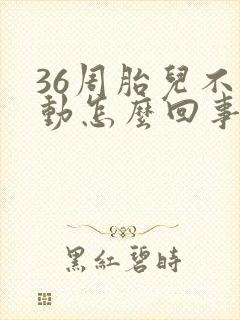 36周胎兒不
動怎麼回事
黑紅碧時